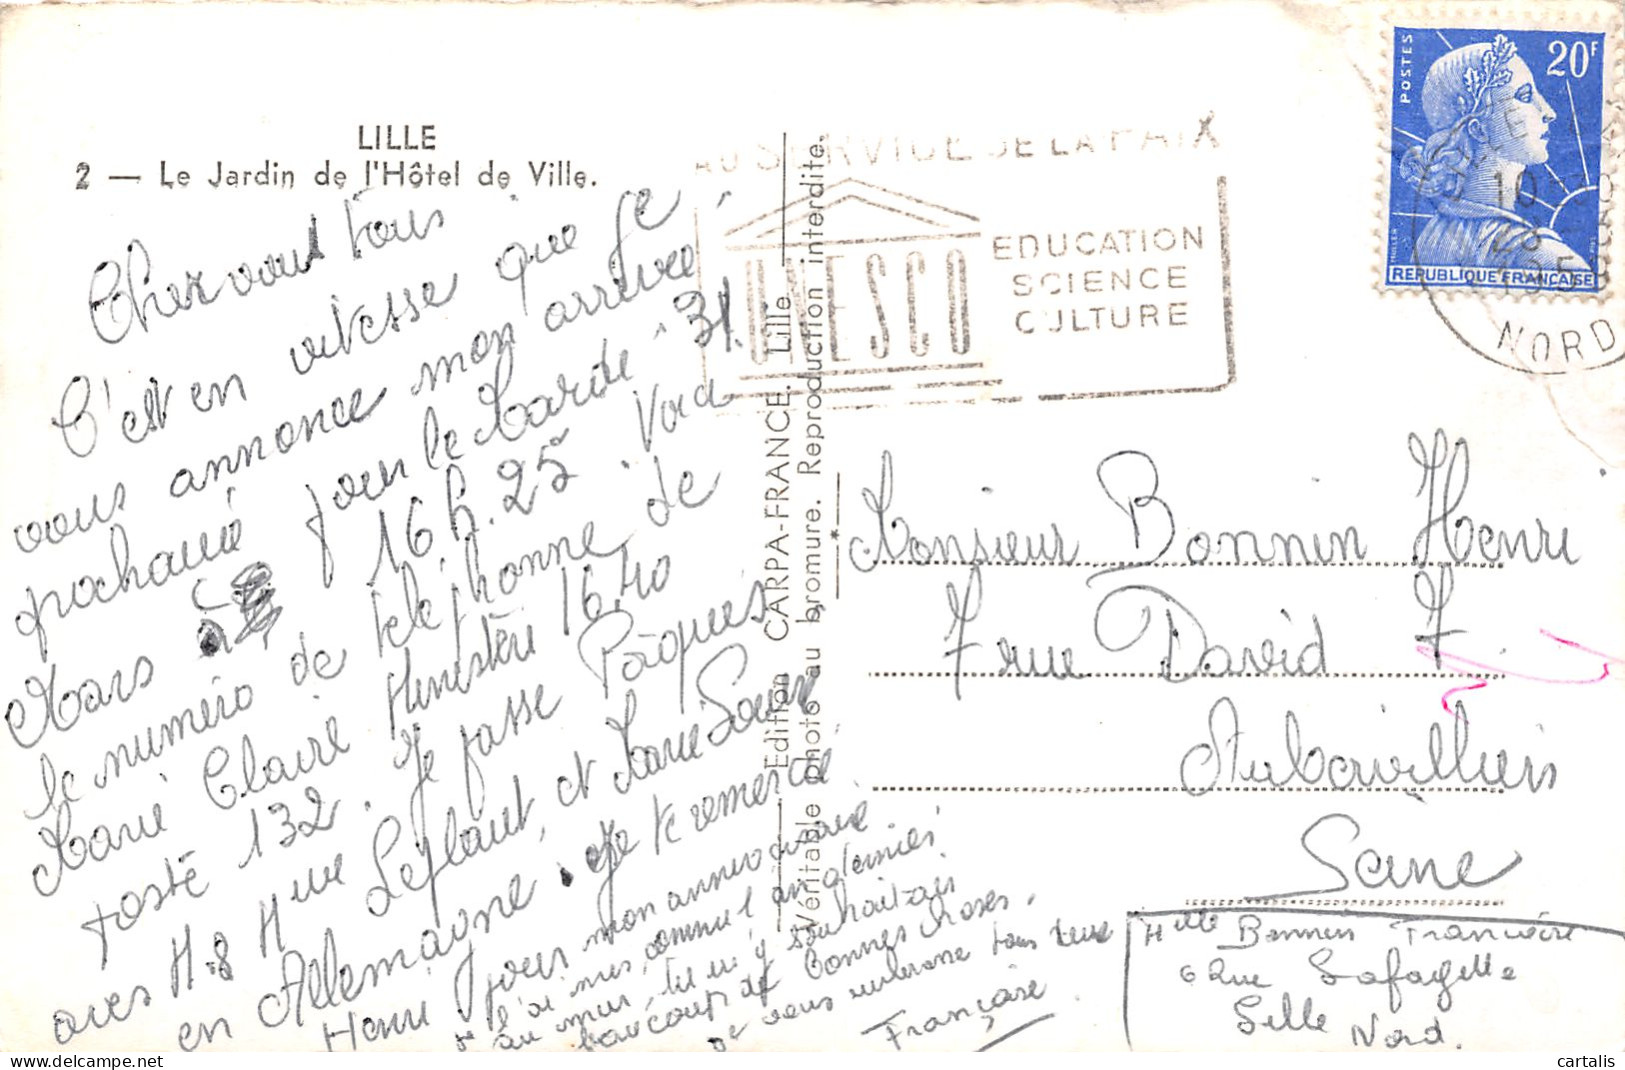 LILLE
2 — Le Jardin de l'Hôtel de Ville.
Cher vous tous
C'est en vitesse que je
vous annonce mon arrivée
prochaine pour le Mardi 31.
Mars à 16 h. 25 Voici
le numéro de téléphone de
Marie Claire Ministère 16.40
Poste 132. Je passe Pâques
avec M. & Mme Leflaut, et Marie Soeur
en Allemagne. Je te remercie
Henri pour mon anniversaire.
je l'ai mis comme l'an dernier
au mur, tu m'y souhaitais
beaucoup de bonnes choses.
Je vous embrasse tous deux
Françoise
Edition CARPA-FRANCE. Lille
Véritable photo au bromure. Reproduction interdite.
AU SERVICE DE LA PAIX
UNESCO
EDUCATION
SCIENCE
CULTURE
POSTES
20F
REPUBLIQUE FRANÇAISE
MULLER
10
23
NORD
Monsieur Bonnin Henri
7 rue David
Aubervilliers
Seine
Mlle Bonnin Françoise
6 Rue Lafayette
Lille
Nord.
cartalis